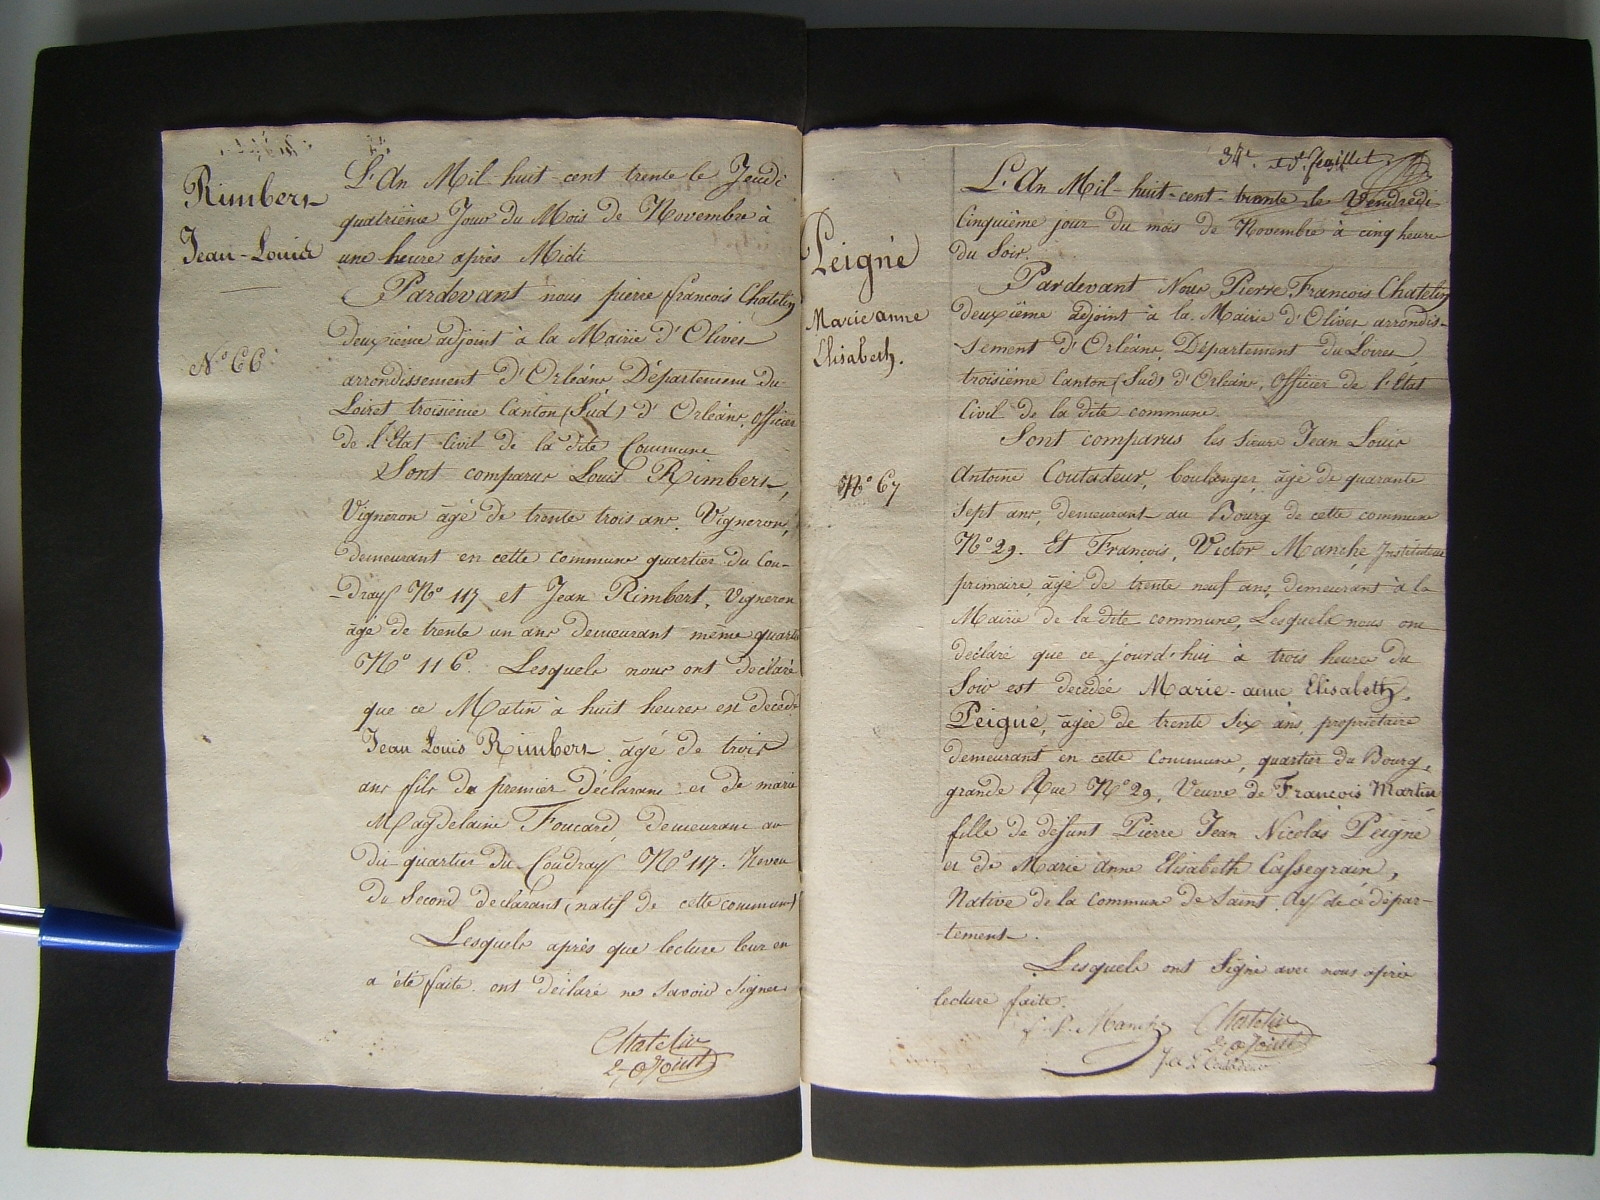 Rimbert
Jean-Louis
N.º 66.
L'An Mil-huit-cent trente le Jeudi
quatrième Jour du Mois de Novembre à
une heure après Midi
Pardevant nous pierre françois Chatelin
deuxième adjoint à la Mairie d'Olivet
arrondissement d'Orléans Département du
Loiret troisième Canton (Sud) d'Orléans, officier
de l'Etat Civil de la dite Commune
Sont comparus Louis Rimbert,
Vigneron âgé de trente trois ans. Vigneron,
demeurant en cette commune quartier du Cou-
-dray Nº 117 et Jean Rimbert, Vigneron
âgé de trente un ans demeurant même quart
Nº 116. Lesquels nous ont déclaré
que ce Matin à huit heures est décédé
Jean Louis Rimbert âgé de trois
ans fils du premier déclarant et de marie
Magdelaine Foucard, demeurant au
dit quartier du Coudray Nº 117. Neveu
du Second déclarant, natif de cette commune
Lesquels après que lecture leur en
a été faite ont déclaré ne savoir signer
Chatelin
2e adjoint
34e. feuillet
Peigné
Marie anne
Elisabeth.
Nº 67
L'An Mil-huit-cent-trente le Vendredi
Cinquième jour du mois de Novembre à cinq heure
du Soir.
Pardevant Nous Pierre François Chatelin
deuxième adjoint à la Mairie d'Olivet arrondis-
-sement d'Orléans, Département du Loiret
troisième Canton (Sud) d'Orléans, Officier de l'Etat
Civil de la dite commune.
Sont comparus les sieurs Jean Louis
Antoine Coutadeur, boulanger, âgé de quarante
sept ans, demeurant au Bourg de cette commune
Nº 29. Et François, Victor Manché, Instituteur
primaire, âgé de trente neuf ans, demeurant à la
Mairie de la dite commune, Lesquels nous ont
déclaré que ce jourd'hui à trois heures du
Soir est décédée Marie-anne Elisabeth
Peigné, âgée de trente six ans, propriétaire
demeurant en cette commune, quartier du Bourg,
grande Rue Nº 29, Veuve de François Martin
fille de défunt Pierre Jean Nicolas Peigné
et de Marie Anne Elisabeth Cassegrain,
Native de la Commune de Saint Ay de ce dépar-
-tement.
Lesquels ont Signé avec nous après
lecture faite.
Manché Chatelin
2e adjoint
Coutadeur